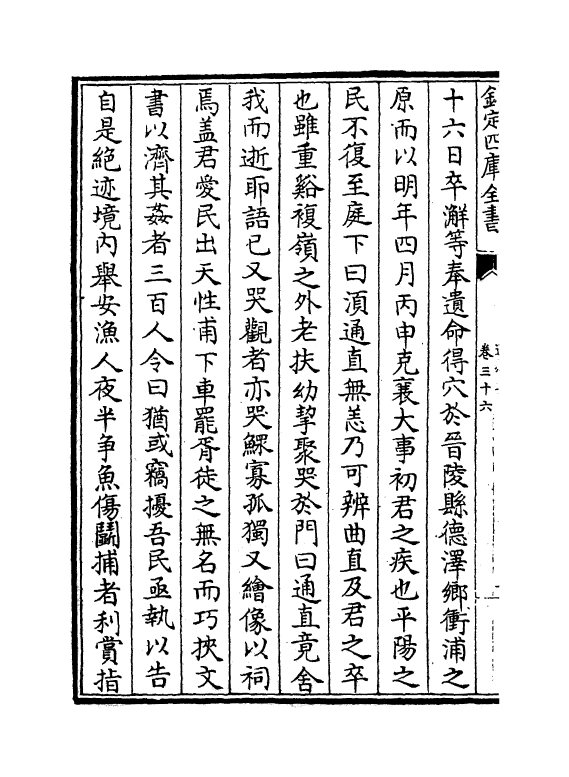 欽定四庫全書
卷三十六
十六日卒澥等奉遺命得穴於晉陵縣德澤鄉衝浦之
原而以明年四月丙申克襄大事初君之疾也平陽之
民不復至庭下曰湏通直無恙乃可辨曲直及君之卒
也雖重谿複嶺之外老扶幼挈聚哭於門曰通直竟舍
我而逝耶語已又哭觀者亦哭鰥寡孤獨又繪像以祠
焉盖君愛民出天性甫下車罷胥徒之無名而巧挾文
書以濟其姦者三百人令曰猶或竊擾吾民亟執以告
自是絶迹境内舉安漁人夜半争魚傷鬭捕者利賞指